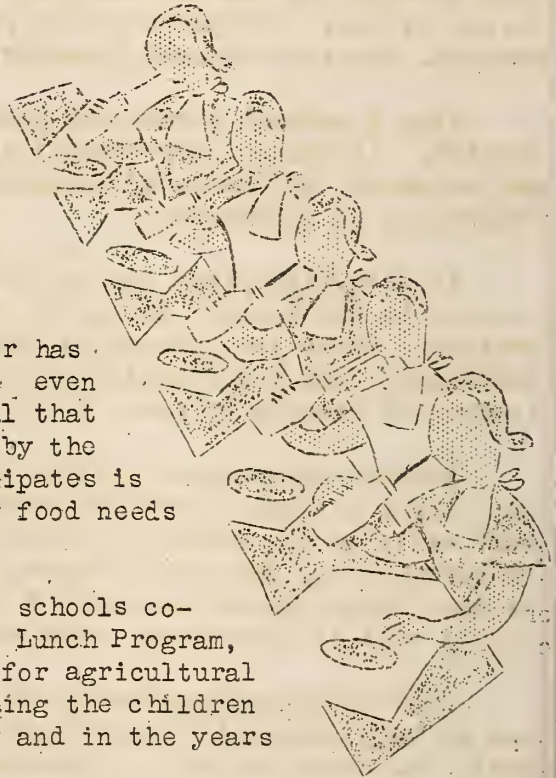 r has
even
l that
by the
ipates is
food needs
schools co-
Lunch Program,
for agricultural
ing the children
and in the years